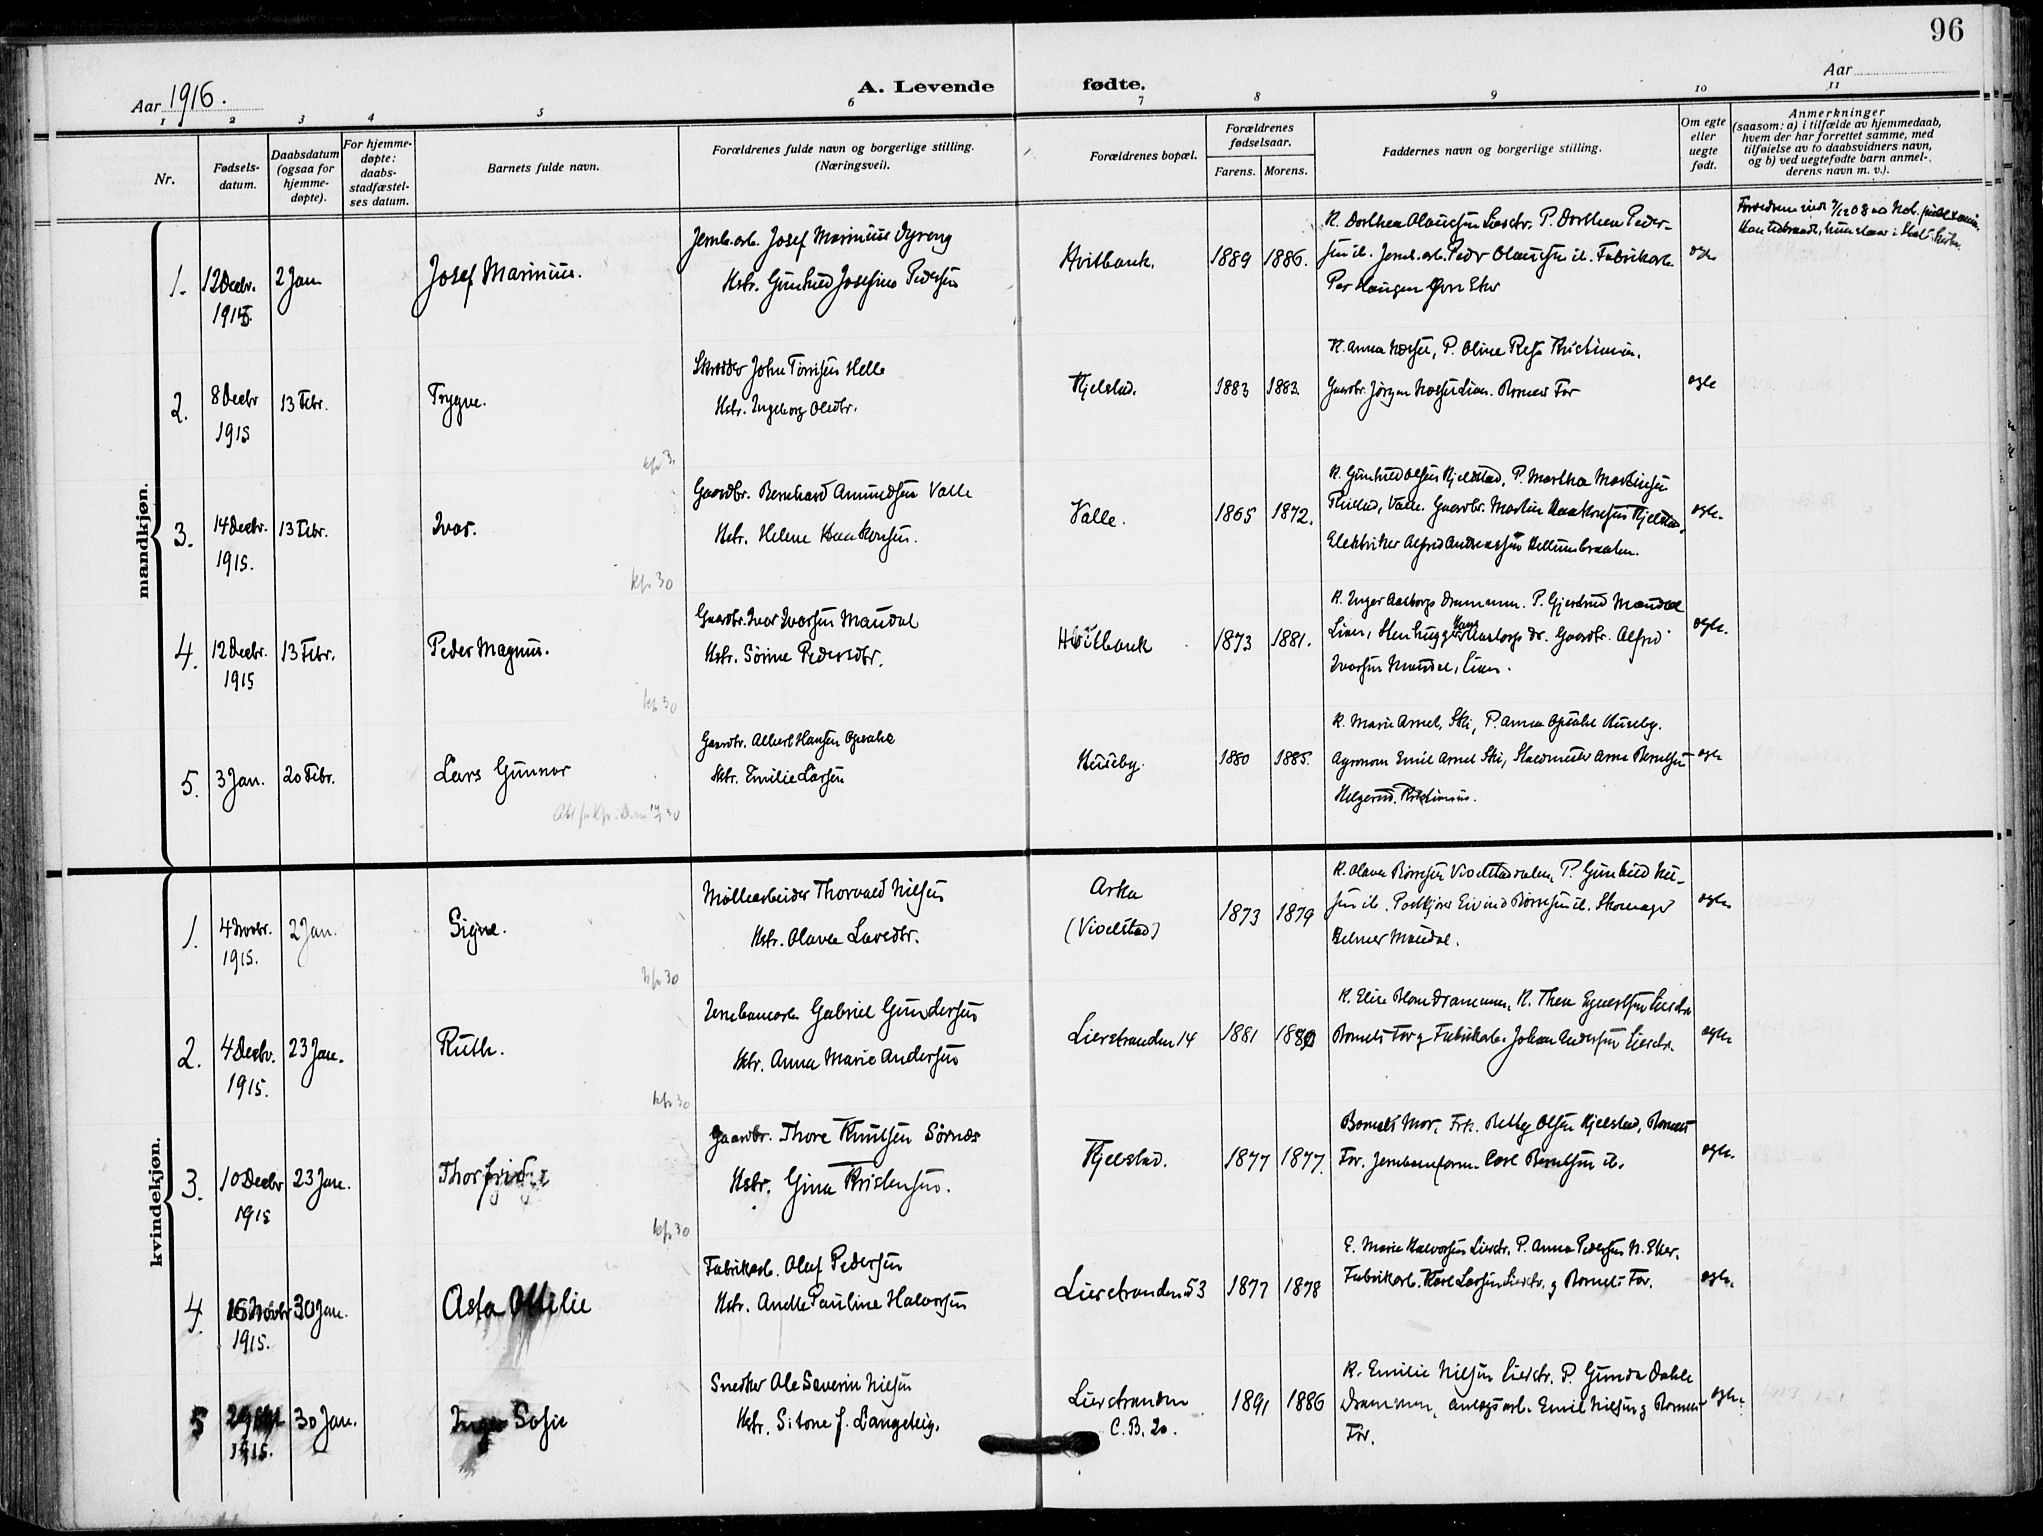 96
Aar 1916.
A. Levende fødte.
Aar
1 2 3 4 5 6 7 8 9 10 11
Nr.
Fødsels-
datum.
Daabsdatum
(ogsaa for
hjemme-
døpte).
For hjemme-
døpte:
daabs-
stadfæstel-
ses datum.
Barnets fulde navn.
Forældrenes fulde navn og borgerlige stilling.
(Næringsvei).
Forældrenes bopæl.
Forældrenes
fødselsaar.
Farens. Morens.
Faddernes navn og borgerlige stilling.
Om egte
eller
uegte
født.
Anmerkninger
(saasom: a) i tilfælde av hjemmedaab,
hvem der har forrettet samme, med
tilføielse av to daabsvidners navn,
og b) ved uegtefødte barn anmel-
derens navn m. v.).
mandkjøn.
1. 12 Decbr. 1915. 2 Jan
Josef Marinius.
Jernb.arb. Josef Marinius Dyreng
Hstr. Gunhild Josefine Pedersen
Hvitbank. 1889 1886.
K. Dorthea Olaussen Lierstr. P. Dorthea Peder-
sen ib. Jernb.arb. Peder Olaussen ib. Fabrikarb.
Per Haugen Øvre Eker
egte
2. 8 Decbr 1915 13 Febr.
Trygve.
Skrædder John Tørrisen Helle
Hstr. Ingeborg Olsdtr.
Kjelstad. 1883 1883.
Gaardbr. Jørgen Lian. Barnets Far
egte
3. 14 Decbr. 1915. 13 Febr.
Ivar.
Gaardbr. Bernhard Amundsen Valle
Hstr. Helene Haakonsen.
Valle. 1865 1872.
K. Gunhild Olsen Kjelstad, P. Martha Martinsen
Valle. Gaardbr. Martin Haakonsen Kjelstad,
Elektriker Alfred Andreassen Hellumbraaten.
egte.
kfr 30
4. 12 Decbr. 1915 13 Febr.
Peder Magnus.
Gaardbr. Ivar Ivarsen Maudal
Hstr. Sørine Pedersdtr.
Hvitbank 1873 1881.
K. Inger Aaborg Drammen. P. Gjertrud Maudal
Lian, Stenhugger Hans Aaborg Dr. Gaardbr. Alfred
Ivarsen Maudal, Lian.
egte.
kfr 30
5. 3 Jan. 20 Febr.
Lars Gunnar
Gaardbr. Albert Hansen Opsahl
Hstr. Emilie Larsen
Huseby. 1880 1885.
K. Marie Arnet, Ski, P. Anna Opsahl Huseby.
Agronom Emil Arnet Ski, Arne Berntsen
Helgerud, Kristiania.
egte
kvindekjøn.
1. 4 Novbr. 1915. 2 Jan.
Signe.
Møllearbeider Thorvald Nilsen
Hstr. Olava Larsdtr.
Arka
(Vivelstad)
1873 1879
K. Olava Børresen Vivelstaddalen, P. Gunhild Nil-
sen ib. Eivind Børresen ib. Skomager
Helmer Maudal.
egte
kfr 30
2. 4 Decbr. 1915. 23 Jan.
Ruth.
Jernbanearb. Gabriel Gundersen
Hstr. Anna Marie Andersen
Lierstranden 14 1881
K. Elise Blom Drammen, K. Thea Lierstr
Barnets Far og Fabrikarb. Johan Andersen Lierstr.
egte
kfr 30
3. 10 Decbr 1915 23 Jan.
Gaardbr. Thore Knutsen Sørnæs
Hstr. Gina Kristensen.
Kjelstad. 1877 1877.
Barnets Mor, Frk. Betty Olsen Kjelstad, Barnets
Far. Jernbaneform. Carl Berntsen ib.
egte.
kfr 30
4. 30 Jan. 1915.
Asta Ottilie
Fabrikarb. Oluf Pedersen
Hstr. Anette Pauline Halvorsen
Lierstranden 53 1877 1878
E. Marie Halvorsen Lierstr. P. Anna Pedersen N. Eker.
Fabrikarb. Karl Larsen Lierstr. og Barnets Far.
egte.
5 1915. 30 Jan.
Inga Sofie
Snedker Ole Severin Nilsen
Hstr. Sitone f. Langeteig.
Lierstranden
C.B. 20.
1891 1886
K. Emilie Nilsen Lierstr. P. Gunda Dahle
Drammen, Anlegsarb. Emil Nilsen og Barnets
Far.
egte.